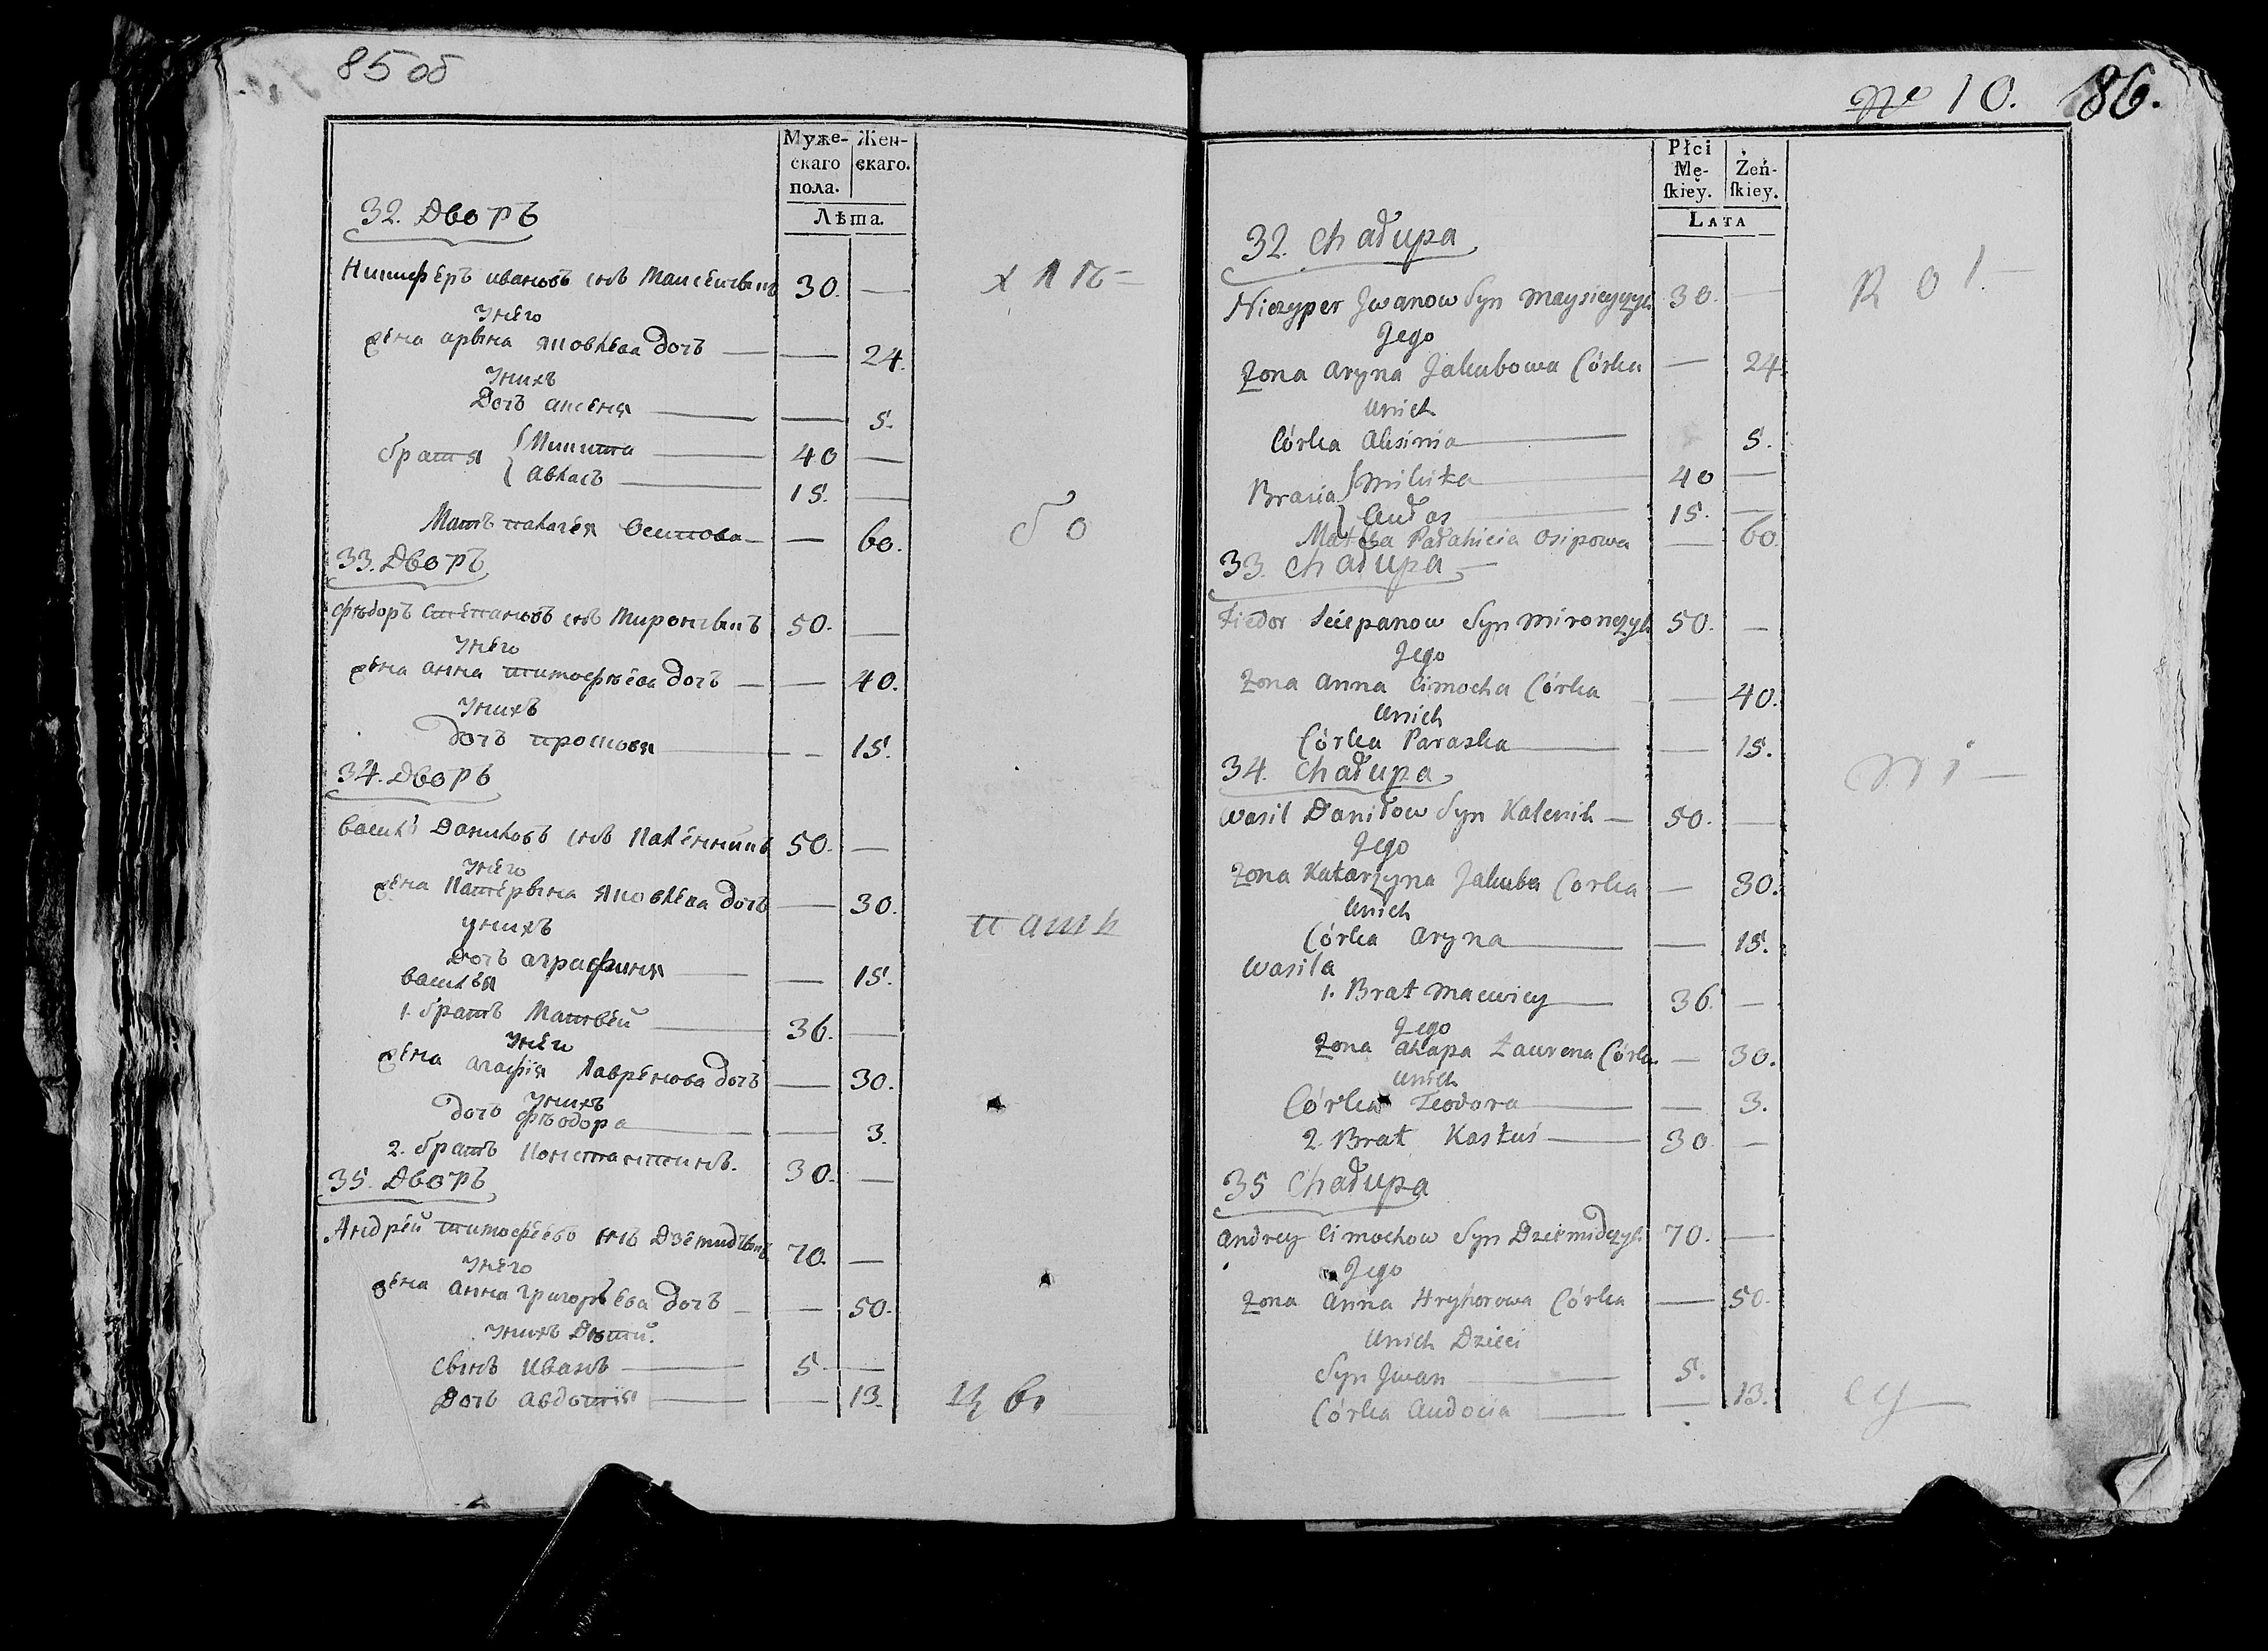 85 об
Муже- Жен-
скаго скаго.
пола.
Лѣта.
32. Дворъ
Никиферъ Ивановъ снъ Майсейчыкъ 30. —
У него
жена Арына Яковлева дочь — — 24.
У нихъ
Дочь Аксеня — — 5.
братья { Микита — 40 —
Авласъ — 15. —
Мать Палагея Осипова — — 60.
33. Дворъ
Фѣдоръ Степановъ снъ Мирончыкъ 50. —
У него
жена Анна Тимофѣева дочь — — 40.
У нихъ
дочь Просковя — — 15.
34. Дворъ
Василь Даниловъ снъ Каленникъ 50. —
У него
жена Катерына Яковлева дочь — 30.
у нихъ
Дочь Аграфиня — — 15.
Василья
1. братъ Матвей — 36. —
У него
жена Агафія Лавренова дочь — 30.
У нихъ
дочь Фѣодора — — 3.
2. братъ Константинъ. 30. —
35. Дворъ
Андрей Тимофеево снъ Дземидчыкъ 70. —
У него
жена Анна Григорьева дочь — — 50.
У нихъ Дѣти.
Сынъ Иванъ — 5. —
Дочь Авдотія — — 13.
бо
пать
№ 10. 86.
Płci
Mę- Żeń-
skiey. skiey.
LATA
32. Chałupa
Niczyper Jwanow Syn Maysieyczyk 30. —
Jego
Żona Aryna Jakubowa Córka — 24
Unich
Córka Aksinia — 5.
Bracia { Mikita — 40 —
Audas — 15. —
Matka Pałahicia Osipowa — 60.
33. Chałupa —
Fiedor Sciepanow Syn Mironczyk 50. —
Jego
Żona Anna Cimocha Córka — 40.
Unich
Córka Paraska — — 15.
34. Chałupa
Wasil Daniłow Syn Kalenik — 50. —
Jego
Żona Katarzyna Jakuba Corka — 30.
Unich
Córka Aryna — — 15.
Wasila
1. Brat Maciey — 36. —
Jego
Żona Ahapa Łaurena Córka — 30.
Unich
Córka Teodora — — 3.
2. Brat Kastuś — 30. —
35 Chałupa
Andrey Cimochow Syn Dziemidczyk 70. —
Jego
Żona Anna Hryhorowa Córka — 50.
Unich Dzieci
Syn Jwan — 5.
Córka Audocia — — 13.